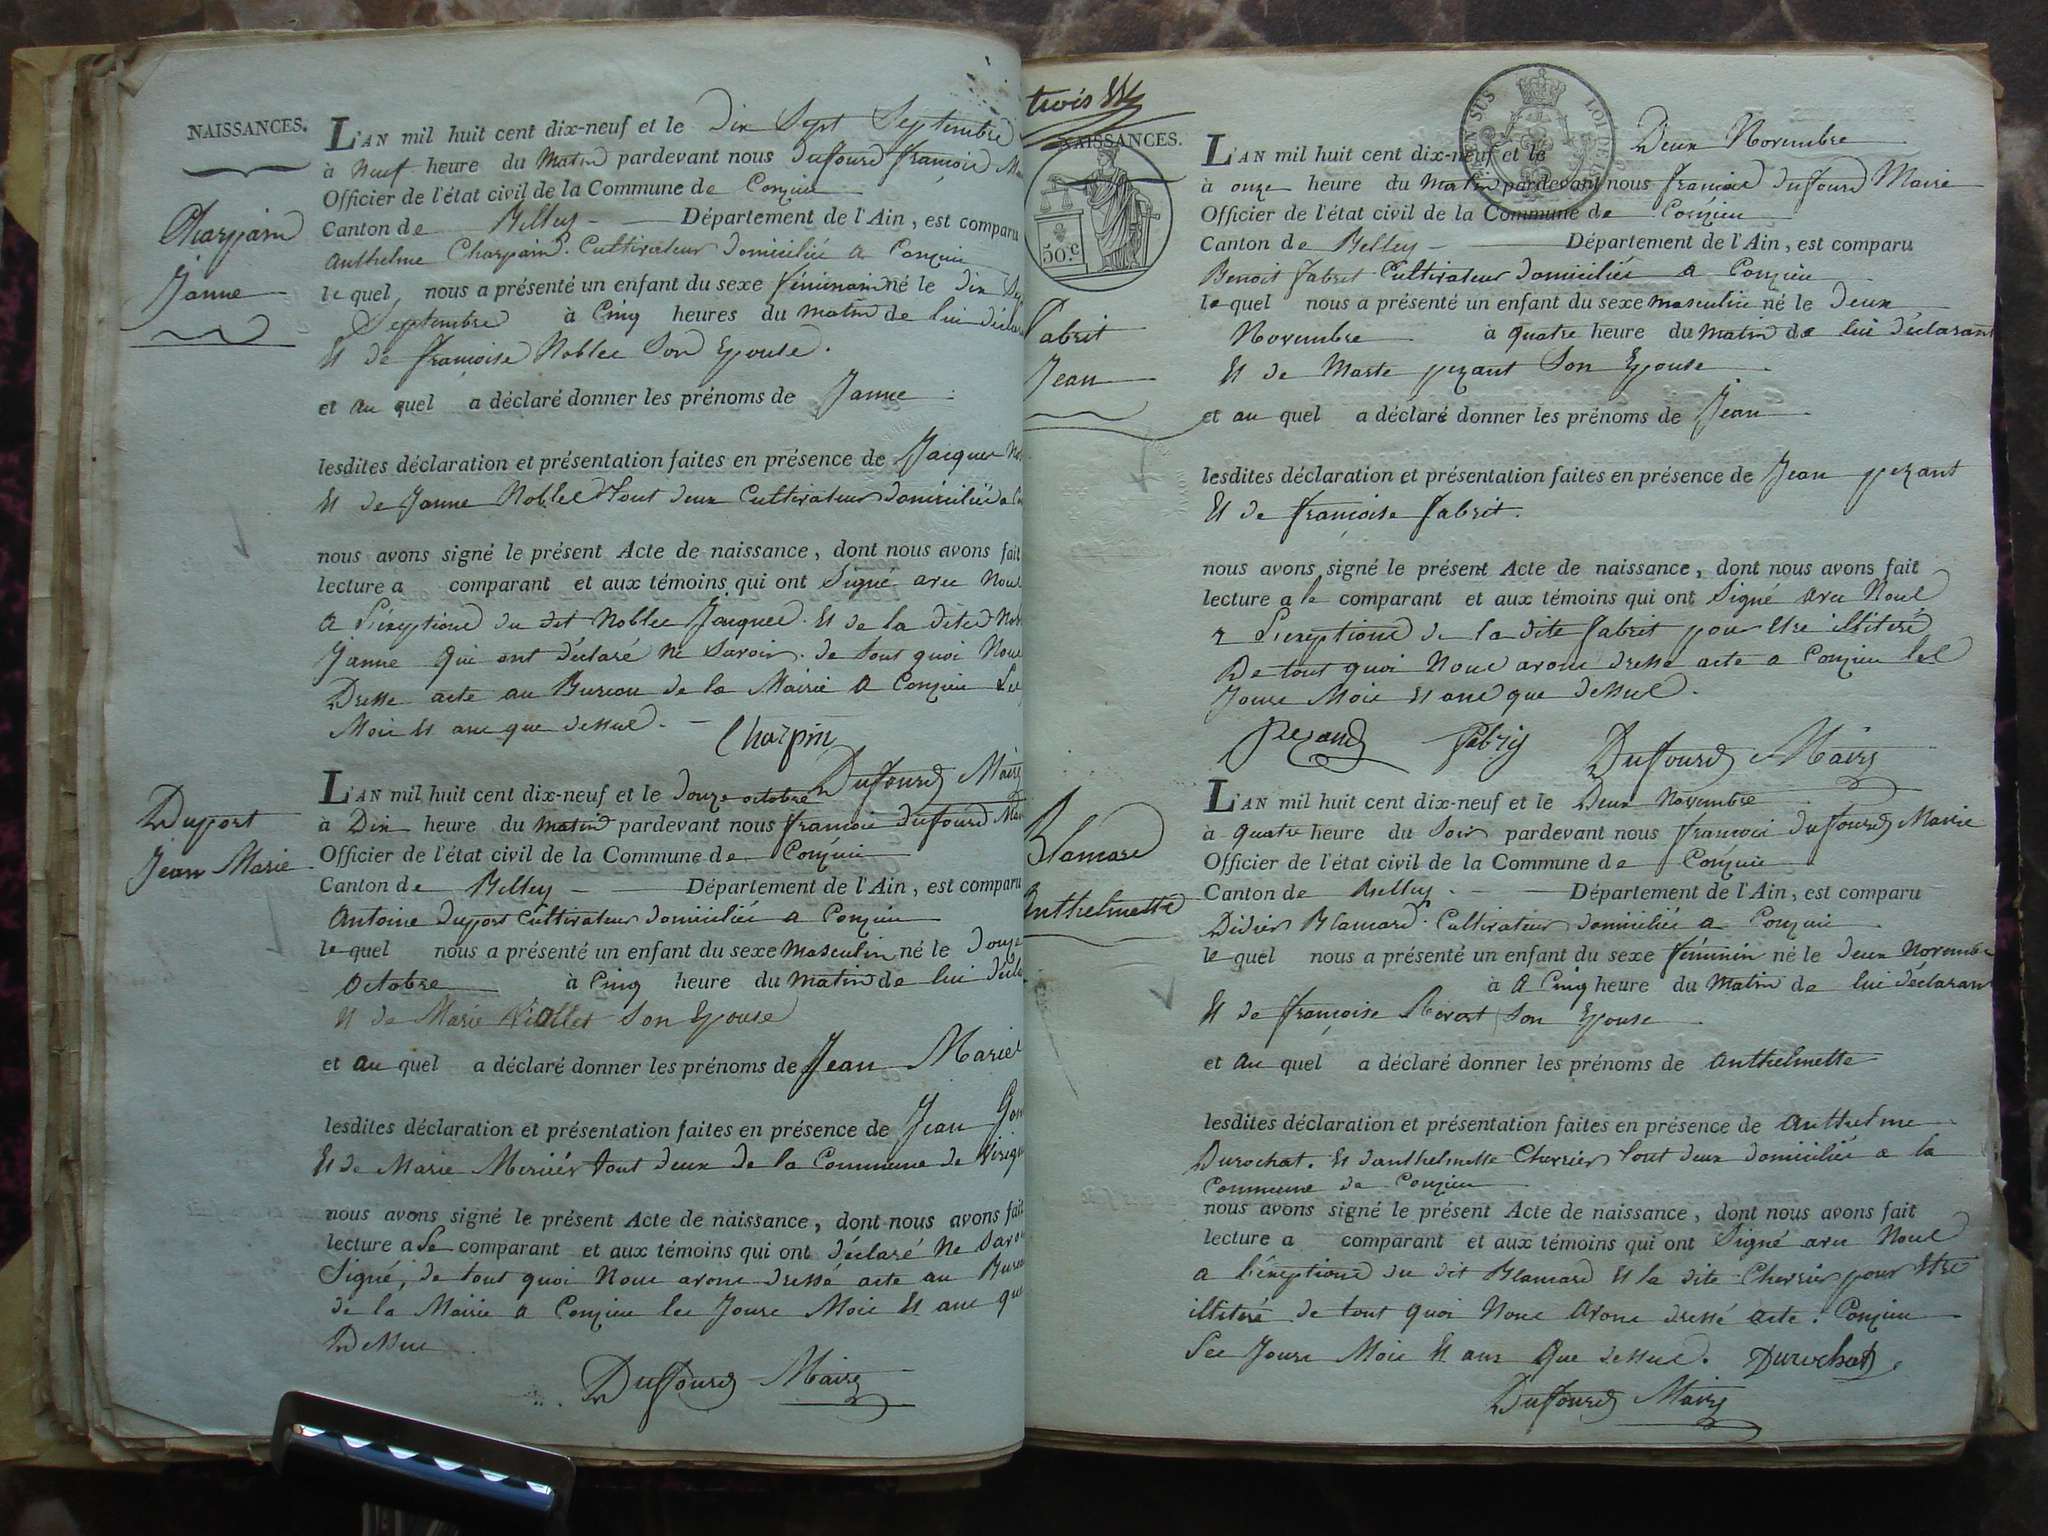 NAISSANCES.
Charpain
Janne
L'AN mil huit cent dix-neuf et le dix Sept Septembre
à Neuf heure du Matin pardevant nous duffourd françois
Officier de l'état civil de la Commune de Conzieu
Canton de Belley Département de l'Ain, est comparu
Anthelme Charpain. Cultivateur domicilié a Conzieu
le quel nous a présenté un enfant du sexe féminin né le dix
Septembre à Cinq heures du matin de lui
Et de françoise Noblec Son Epouse.
et au quel a déclaré donner les prénoms de Janne
lesdites déclaration et présentation faites en présence de Jacques
Et de Janne Noblec tout deux Cultivateur domicilié a
nous avons signé le présent Acte de naissance, dont nous avons fait
lecture a comparant et aux témoins qui ont Signé avec Nous
A L'éxeption du dit Noblec Jacques. Et de la dite
Janne qui ont déclaré ne Savoir. de tout quoi Nous
Dresse acte au Bureau de la Mairie a Conzieu Les
Mois et ans que dessus. Charpin
Duffourd Maire
Duport
Jean Marie
L'AN mil huit cent dix-neuf et le douze octobre
à Dix heure du matin pardevant nous francois duffourd
Officier de l'état civil de la Commune de Conzieu
Canton de Belley Département de l'Ain, est comparu
Antoine duport Cultivateur domicilié a Conzieu
le quel nous a présenté un enfant du sexe masculin né le douze
Octobre à Cinq heure du matin de lui
Et de Marie Viollet Son Epouse
et au quel a déclaré donner les prénoms de Jean Marie
lesdites déclaration et présentation faites en présence de Jean
Et de Marie Merciér tout deux de la Commune de
nous avons signé le présent Acte de naissance, dont nous avons fait
lecture a Le comparant et aux témoins qui ont déclaré Ne
Signé, de tout quoi Nous avons dressé acte au
de la Mairie a Conzieu les Jours Mois Et ans que
Dessus
Duffourd Maire
trois
NAISSANCES.
50.c
fabrit
Jean
L'AN mil huit cent dix-neuf et le Deux Novembre
à onze heure du Matin pardevant nous francois duffourd Maire
Officier de l'état civil de la Commune de Conzieu
Canton de Belley Département de l'Ain, est comparu
Benoit fabrit Cultivateur domicilié a Conzieu
le quel nous a présenté un enfant du sexe masculin né le deux
Novembre à quatre heure du matin de lui déclarant
Et de Marte pezant Son Epouse
et au quel a déclaré donner les prénoms de Jean
lesdites déclaration et présentation faites en présence de Jean pezant
Et de françoise fabrit.
nous avons signé le présent Acte de naissance, dont nous avons fait
lecture a le comparant et aux témoins qui ont Signe avec Nous
a L'exeption de la dite fabrit pour Etre illiteré
De tout quoi Nous avons dresse acte a Conzieu les
Jours Mois Et ans que dessus.
Pezand fabrit Duffourd Maire
Blancard
Anthelmette
L'AN mil huit cent dix-neuf et le Deux Novembre
à quatre heure du Soir pardevant nous francois duffourd Mairie
Officier de l'état civil de la Commune de Conzieu
Canton de Belley. Département de l'Ain, est comparu
Didier Blancard. Cultivateur domicilié a Conzieu
le quel nous a présenté un enfant du sexe féminin né le deux Novembre
à A Cinq heure du Matin de lui déclarant
Et de françoise Son Epouse
et au quel a déclaré donner les prénoms de anthelmette
lesdites déclaration et présentation faites en présence de anthelme
Durochat. Et danthelmette Cherrier tout deux domicilié a la
Commune de Conzieu
nous avons signé le présent Acte de naissance, dont nous avons fait
lecture a comparant et aux témoins qui ont Signé avec Nous
A l'éxeption du dit Blancard Et la dite Cherrier pour Etre
illiteré de tout quoi Nous Avons dressé acte. Conzieu
Les Jours Mois Et ans Que dessus. Durochat
Duffourd Maire